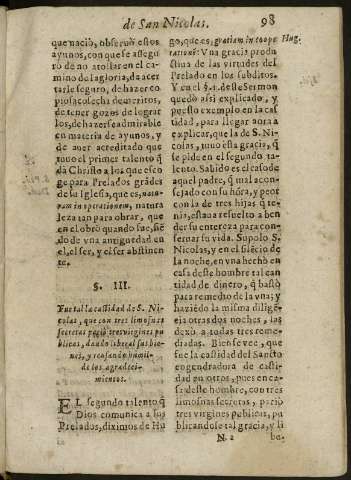 de San Nicolas.
98
que naciò, obseruò estos
ayunos, con que se assegu
rò de no atollar en el ca-
mino de la gloria, de acer
tarle seguro, de hazer co
piosa cosecha de meritos,
de tener gozes de lograr
los, de hazerse admirable
en materia de ayunos, y
de auer acreditado que
tuuo el primer talento q̃
da Christo a los que esco
ge para Prelados grãdes
de su Iglesia, que es, natu-
ram in operationem, natura
leza tan para obrar, que
en el obrò quando fue, siẽ
do de vna antiguedad en
el, el ser, y el ser abstinen
te.
§. III.
Fue tal la castidad de S. Ni-
colas, que con tres limosnas
secretas pariò tres virgines pu
blicas, dando liberal sus bie-
nes, y reusando humil-
de los agradeci-
mientos.
EL segundo talento q̃
Dios comunica a sus
Prelados, diximos de Hu
go, que es, gratiam in coope
rationẽ: Vna gracia produ
ctiua de las virtudes del
Prelado en los subditos.
Y en el §.1. deste Sermon
quedò assi explicado, y
puesto exemplo en la cas
tidad, para llegar aora a
explicar, que la de S. Ni-
colas, tuuo esta gracia, q̃
se pide en el segundo ta-
lento. Sabido es el caso de
aquel padre, q̃ mal acon-
sejado con su hõra, y peor
con la de tres hijas q̃ te-
nia, estaua resuelto a ben
der su entereza para con-
sernar su vida. Supolo S.
Nicolas, y en el silẽcio de
la noche, en vna hechò en
casa deste hombre tal can
tidad de dinero, q̃ bastò
para remedio de la vna; y
haviẽdo la misma dilige-
cia otras dos noches, las
dexò a todas tres reme-
diadas. Bien se vee, que
fue la castidad del Sancto
engendradora de casti-
dad en otros, pues en ca-
sa deste hombre, con tres
limosnas secretas, pariò
tres virgines publicas, pu
blicandose tal gracia, y si
Hug.
N. 2
bu-